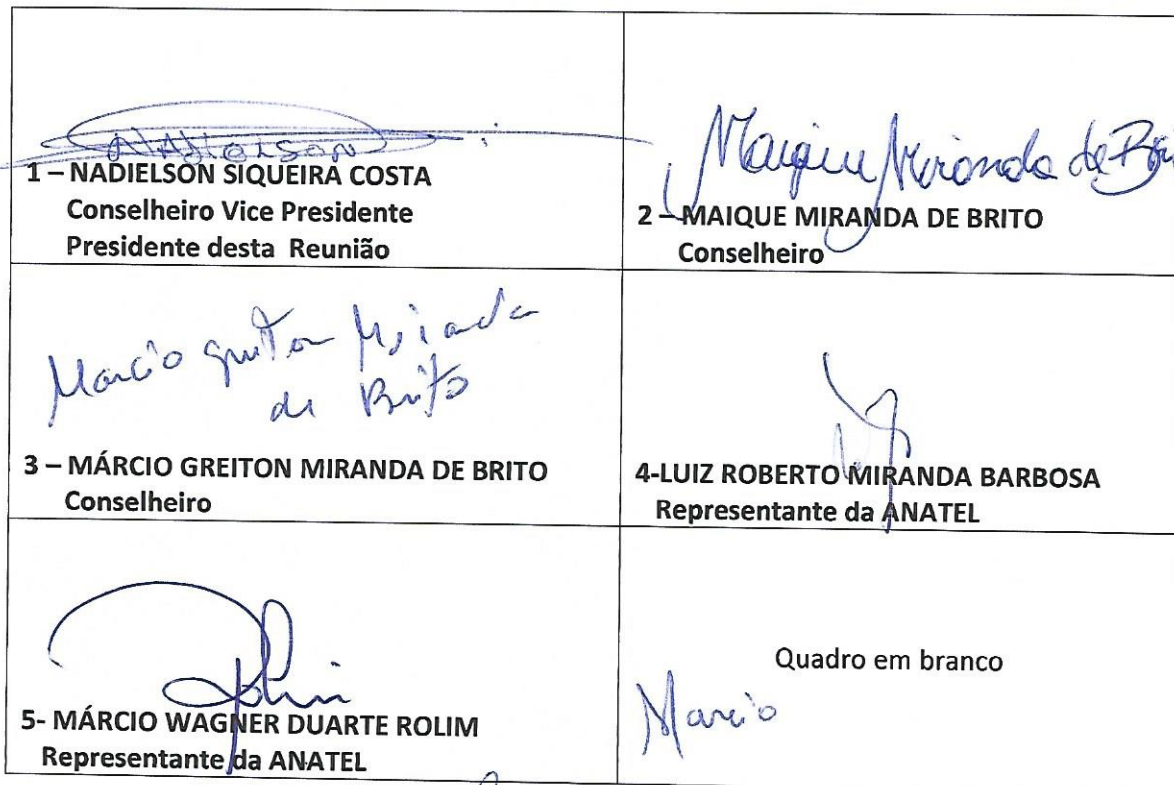 Nadielson
1 – NADIELSON SIQUEIRA COSTA
Conselheiro Vice Presidente
Presidente desta Reunião
Maique Miranda de
2 – MAIQUE MIRANDA DE BRITO
Conselheiro
Marcio Greiton Miranda
de Brito
3 – MÁRCIO GREITON MIRANDA DE BRITO
Conselheiro
4-LUIZ ROBERTO MIRANDA BARBOSA
Representante da ANATEL
Rolim
5- MÁRCIO WAGNER DUARTE ROLIM
Representante da ANATEL
Quadro em branco
Marcio